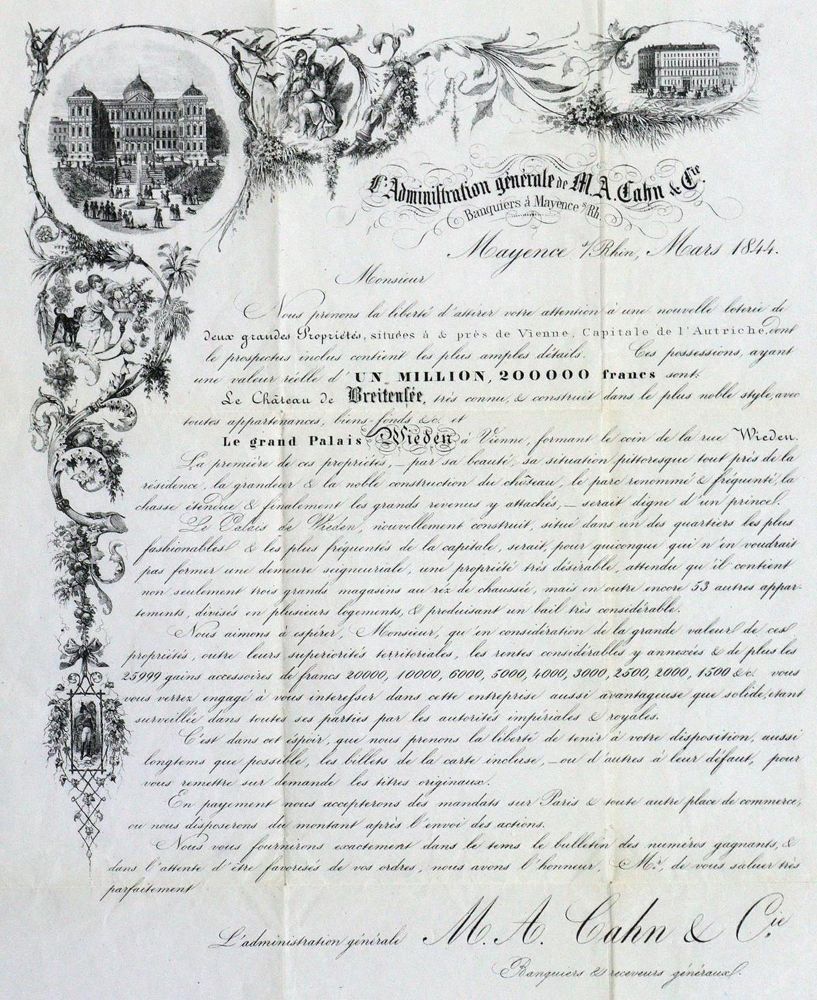 L'Administration générale de M. A. Cahn & Cie.
Banquiers à Mayence s/Rh.
Mayence s/Rhin, Mars 1844.
Monsieur
Nous prenons la liberté d'attirer votre attention à une nouvelle loterie de
deux grandes Propriétés, situées à & près de Vienne, Capitale de l'Autriche, dont
le prospectus inclus contient les plus amples détails. Ces possessions, ayant
une valeur réelle d'UN MILLION, 200000 francs sont:
Le Château de Breitensée, très connu, & construit dans le plus noble style, avec
toutes appartenances, biens-fonds &c. et
Le grand Palais Wieden à Vienne, formant le coin de la rue Wieden.
La première de ces propriétés, — par sa beauté, sa situation pittoresque tout près de la
résidence, la grandeur & la noble construction du château, le parc renommé & fréquenté, la
chasse étendue & finalement les grands revenus y attachés, — serait digne d'un prince.
Le Palais de Wieden, nouvellement construit, situé dans un des quartiers les plus
fashionables & les plus fréquentés de la capitale, serait, pour quiconque qui n'en voudrait
pas former une demeure seigneuriale, une propriété très désirable, attendu qu'il contient
non seulement trois grands magasins au réz de chaussée, mais en outre encore 53 autres appar-
tements, divisés en plusieurs logements, & produisant un bail très considérable.
Nous aimons à espérer, Monsieur, qu'en considération de la grande valeur de ces
propriétés, outre leurs superiorités territoriales, les rentes considérables y annexées & de plus les
25999 gains accessoires de francs 20000, 10000, 6000, 5000, 4000, 3000, 2500, 2000, 1500 &c. vous
vous verrez engagé à vous interesser dans cette entreprise aussi avantageuse que solide, étant
surveillée dans toutes ses parties par les autorités impériales & royales.
C'est dans cet espoir, que nous prenons la liberté de tenir à votre disposition, aussi
longtems que possible, les billets de la carte incluse, — ou d'autres à leur défaut, pour
vous remettre sur demande les titres originaux.
En payement nous accepterons des mandats sur Paris & toute autre place de commerce,
ou nous disposerons du montant après l'envoi des actions.
Nous vous fournirons exactement dans le tems le bulletin des numéros gagnants, &
dans l'attente d'être favorisés de vos ordres, nous avons l'honneur, Mr., de vous saluer très
parfaitement
L'administration générale M. A. Cahn & Cie.
Banquiers & receveurs généraux.